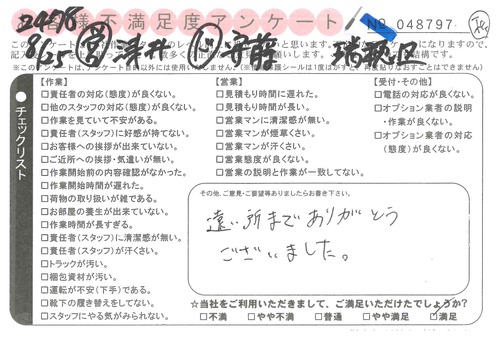 お客様不満足度アンケート
NO 048797
8/25 営 津井 安静 瑞穂区
チェックリスト
【作業】
□責任者の対応(態度)が良くない。
□他のスタッフの対応(態度)が良くない。
□作業を見ていて不安がある。
□責任者(スタッフ)に好感が持てない。
□お客様への挨拶が出来ていない。
□ご近所への挨拶・気遣いが無い。
□作業開始前の内容確認がなかった。
□作業開始時間が遅れた。
□荷物の取り扱いが雑である。
□お部屋の養生が出来ていない。
□作業時間が長すぎる。
□責任者(スタッフ)に清潔感が無い。
□責任者(スタッフ)が汗くさい。
□トラックが汚い。
□梱包資材が汚い。
□運転が不安(下手)である。
□靴下の履き替えをしてない。
□スタッフにやる気がみられない。
【営業】
□見積もり時間に遅れた。
□見積もり時間が長い。
□営業マンに清潔感が無い。
□営業マンが煙草くさい。
□営業マンが汗くさい。
□営業態度が良くない。
□営業の説明と作業が一致してない。
【受付・その他】
□電話の対応が良くない。
□オプション業者の説明
・作業が良くない。
□オプション業者の対応
(態度)が良くない。
その他、ご意見・ご要望等ありましたらお書き下さい。
遠い所までありがとう
ございました。
☆当社をご利用いただきまして、ご満足いただけたでしょうか?
□不満 □やや不満 □普通 □やや満足 ☑満足